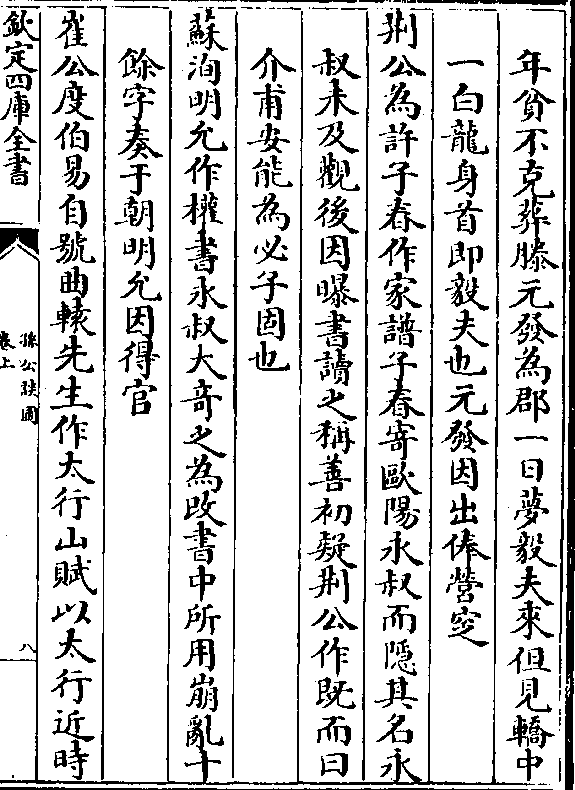 年貧不克葬滕元發為郡一日夢毅夫來但見轎中
一白龍身首即毅夫也元發因出俸營窆
荆公為許子春作家譜子春寄歐陽永叔而隱其名永
叔未及觀後因曝書讀之稱善初疑荆公作既而曰
介甫安能為必子固也
蘇洵明允作權書永叔大奇之為改書中所用崩亂十
餘字奏于朝明允因得官
崔公度伯易自號曲轅先生作太行山賦以太行近時
欽定四庫全書
孫公談圃
卷上
八